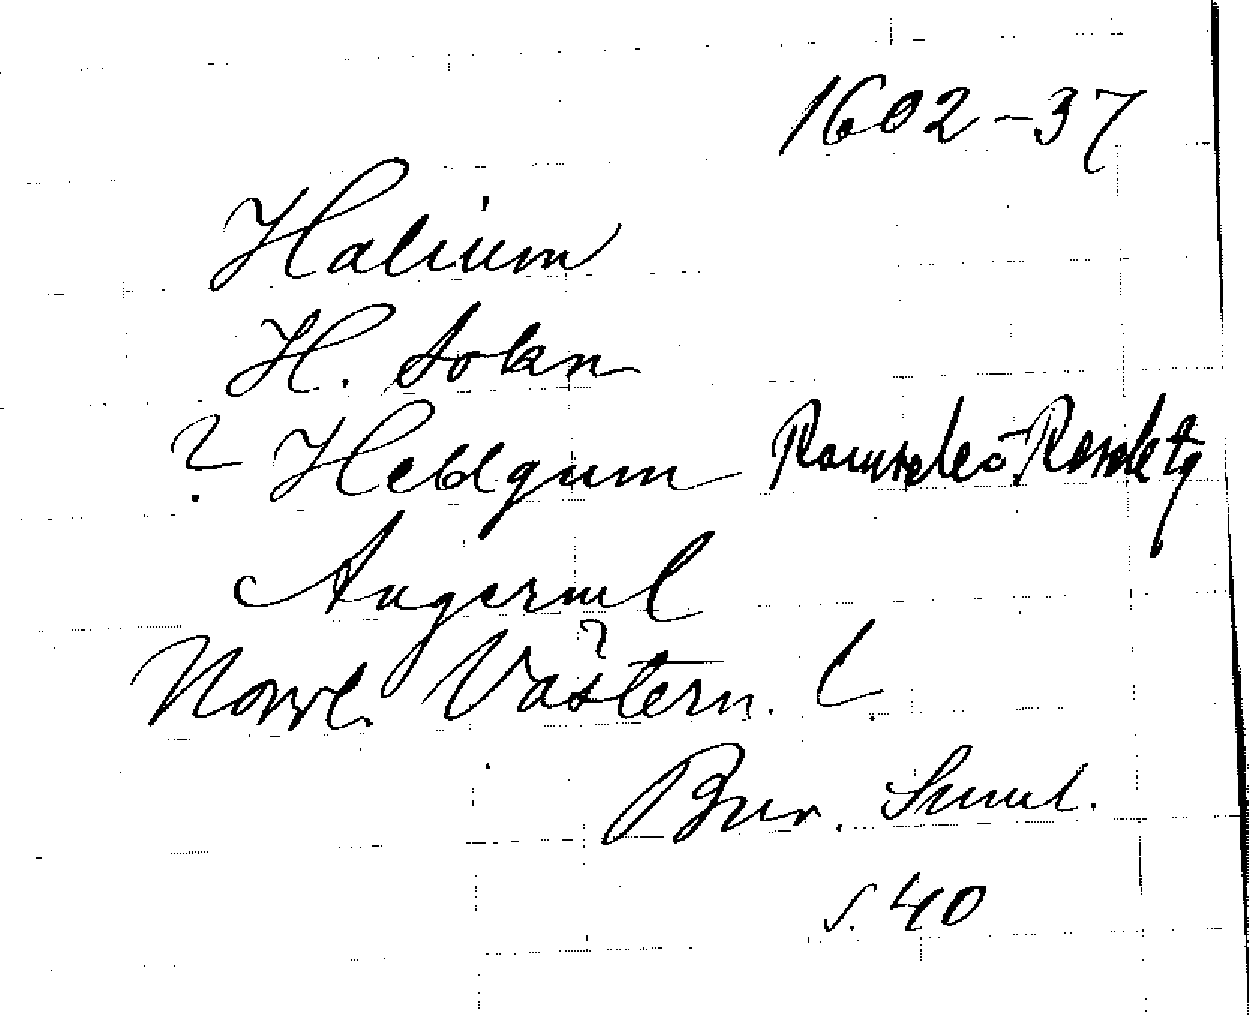 1602-37
Halium
H. sokn
? Heldgum Ramsele o. Resele tg
Ångerml
Norrl. Västern. l.
?
Bur. Suml.
s. 40